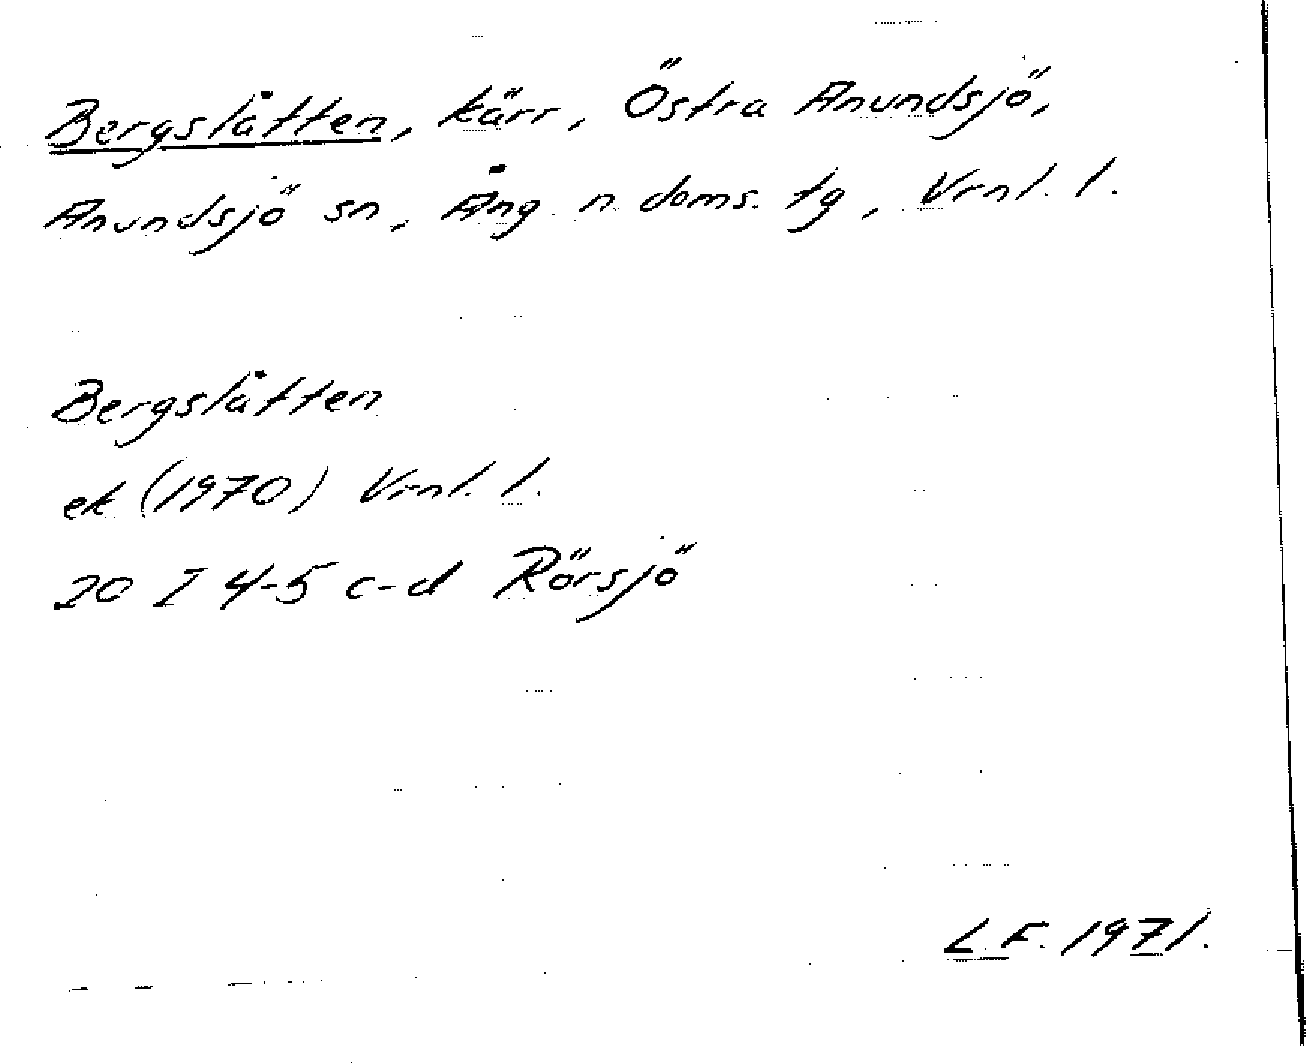 Bergslåtten, kärr, Östra Anundsjö,
Anundsjö sn, Ång. n doms. tg, Vrnl. l.
Bergslåtten
ek (1970) Vrnl. l.
20 I 4-5 c-d Rörsjö
L.F. 1971.